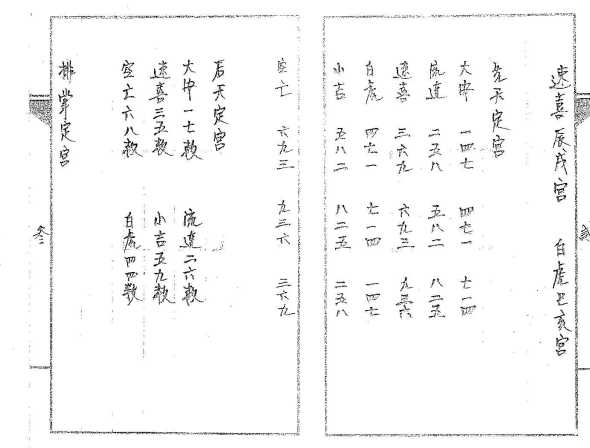 速喜辰戌宫 白虎巳亥宫
先天定宫
大 一四七 四七一 七一四
流連 二五八 五八二 八二五
速喜 三六九 六九三 九三六
白虎 四七一 七一四 一四七
小吉 五八二 八二五 二五八
空亡 六九三 九三六 三六九
后天定宫
大 一七数 流連二六数
速喜三五数 小吉五九数
空亡六八数 白虎四四数
排掌定宫
叁